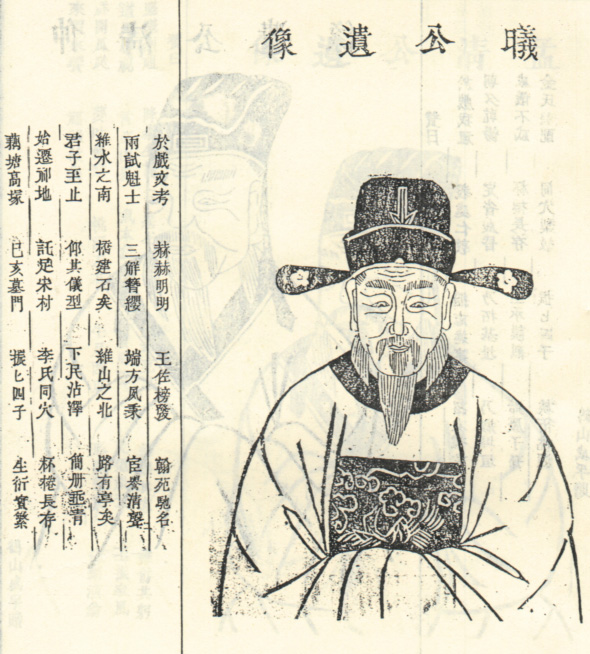 曦公遺像
於戲文考 赫赫明明 王佐榜發 翰苑馳名
兩試魁士 三解簪纓 端方夙秉 宦譽清聲
維水之南 橋建石矣 維山之北 路有亭矣
君子至止 仰其儀型 下民沾澤 簡册垂青
始遷祁地 託足宋村 李氏同穴 杯棬長存
藕塘高塚 已亥墓門 張七四子 生衍實繁